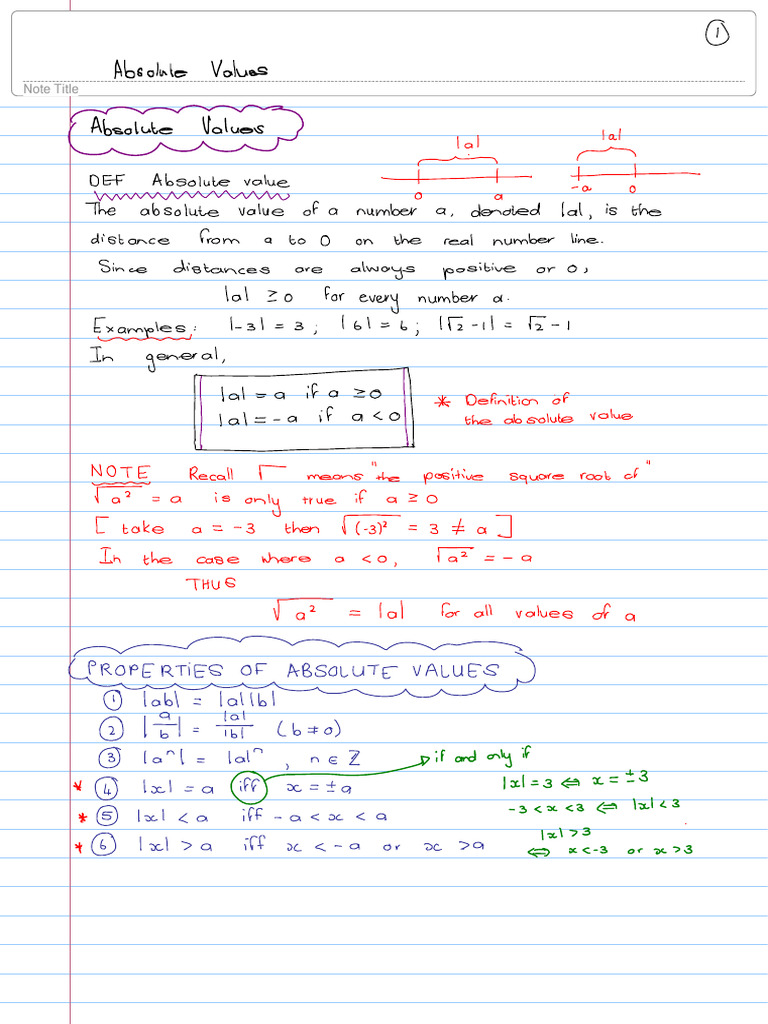 ①
Absolute Values
Note Title
Absolute Values
|a| |a|
DEF Absolute value
0 a -a 0
The absolute value of a number a, denoted |a|, is the
distance from a to 0 on the real number line.
Since distances are always positive or 0,
|a| ≥ 0 for every number a.
Examples: |-3| = 3 ; |6| = 6 ; |√2 - 1| = √2 - 1
In general,
|a| = a if a ≥ 0
|a| = -a if a < 0
* Definition of
the absolute value
NOTE Recall √ means "the positive square root of"
√a² = a is only true if a ≥ 0
[ take a = -3 then √(-3)² = 3 ≠ a ]
In the case where a < 0, √a² = -a
THUS
√a² = |a| for all values of a
PROPERTIES OF ABSOLUTE VALUES
① |ab| = |a||b|
② |a/b| = |a|/|b| (b ≠ 0)
③ |aⁿ| = |a|ⁿ , n ∈ ℤ
if and only if
* ④ |x| = a iff x = ±a
|x| = 3 ⇔ x = ±3
* ⑤ |x| < a iff -a < x < a
-3 < x < 3 ⇔ |x| < 3
* ⑥ |x| > a iff x < -a or x > a
|x| > 3
⇔ x < -3 or x > 3